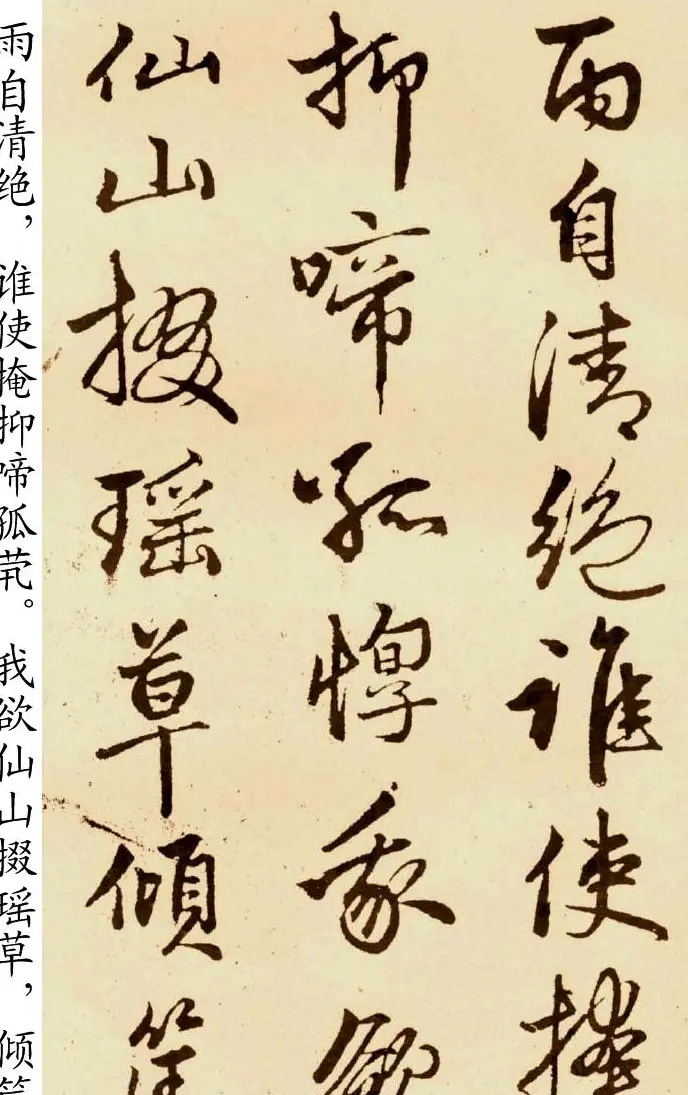 雨自清絶誰使掩
抑啼孤惸我欲
仙山掇瑶草傾筐
雨自清绝，谁使掩抑啼孤茕。我欲仙山掇瑶草，倾筐